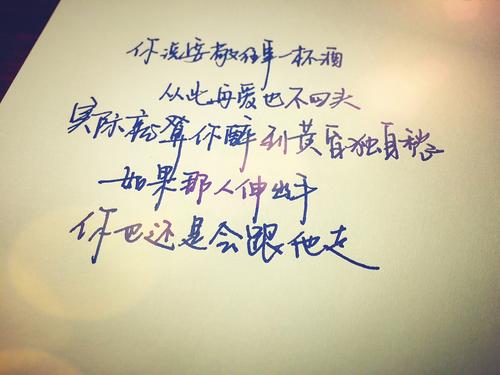 你说要敬往事一杯酒
从此再爱也不回头
实际就算你醉到黄昏独自愁
如果那人伸出手
你也还是会跟他走